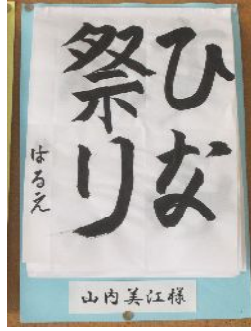 ひな
祭り
はるえ
山内美江様